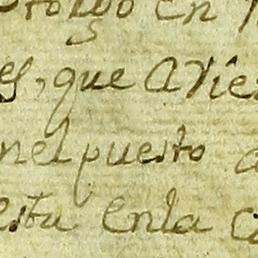 en
es, que avie
nel puesto a
esta enla c